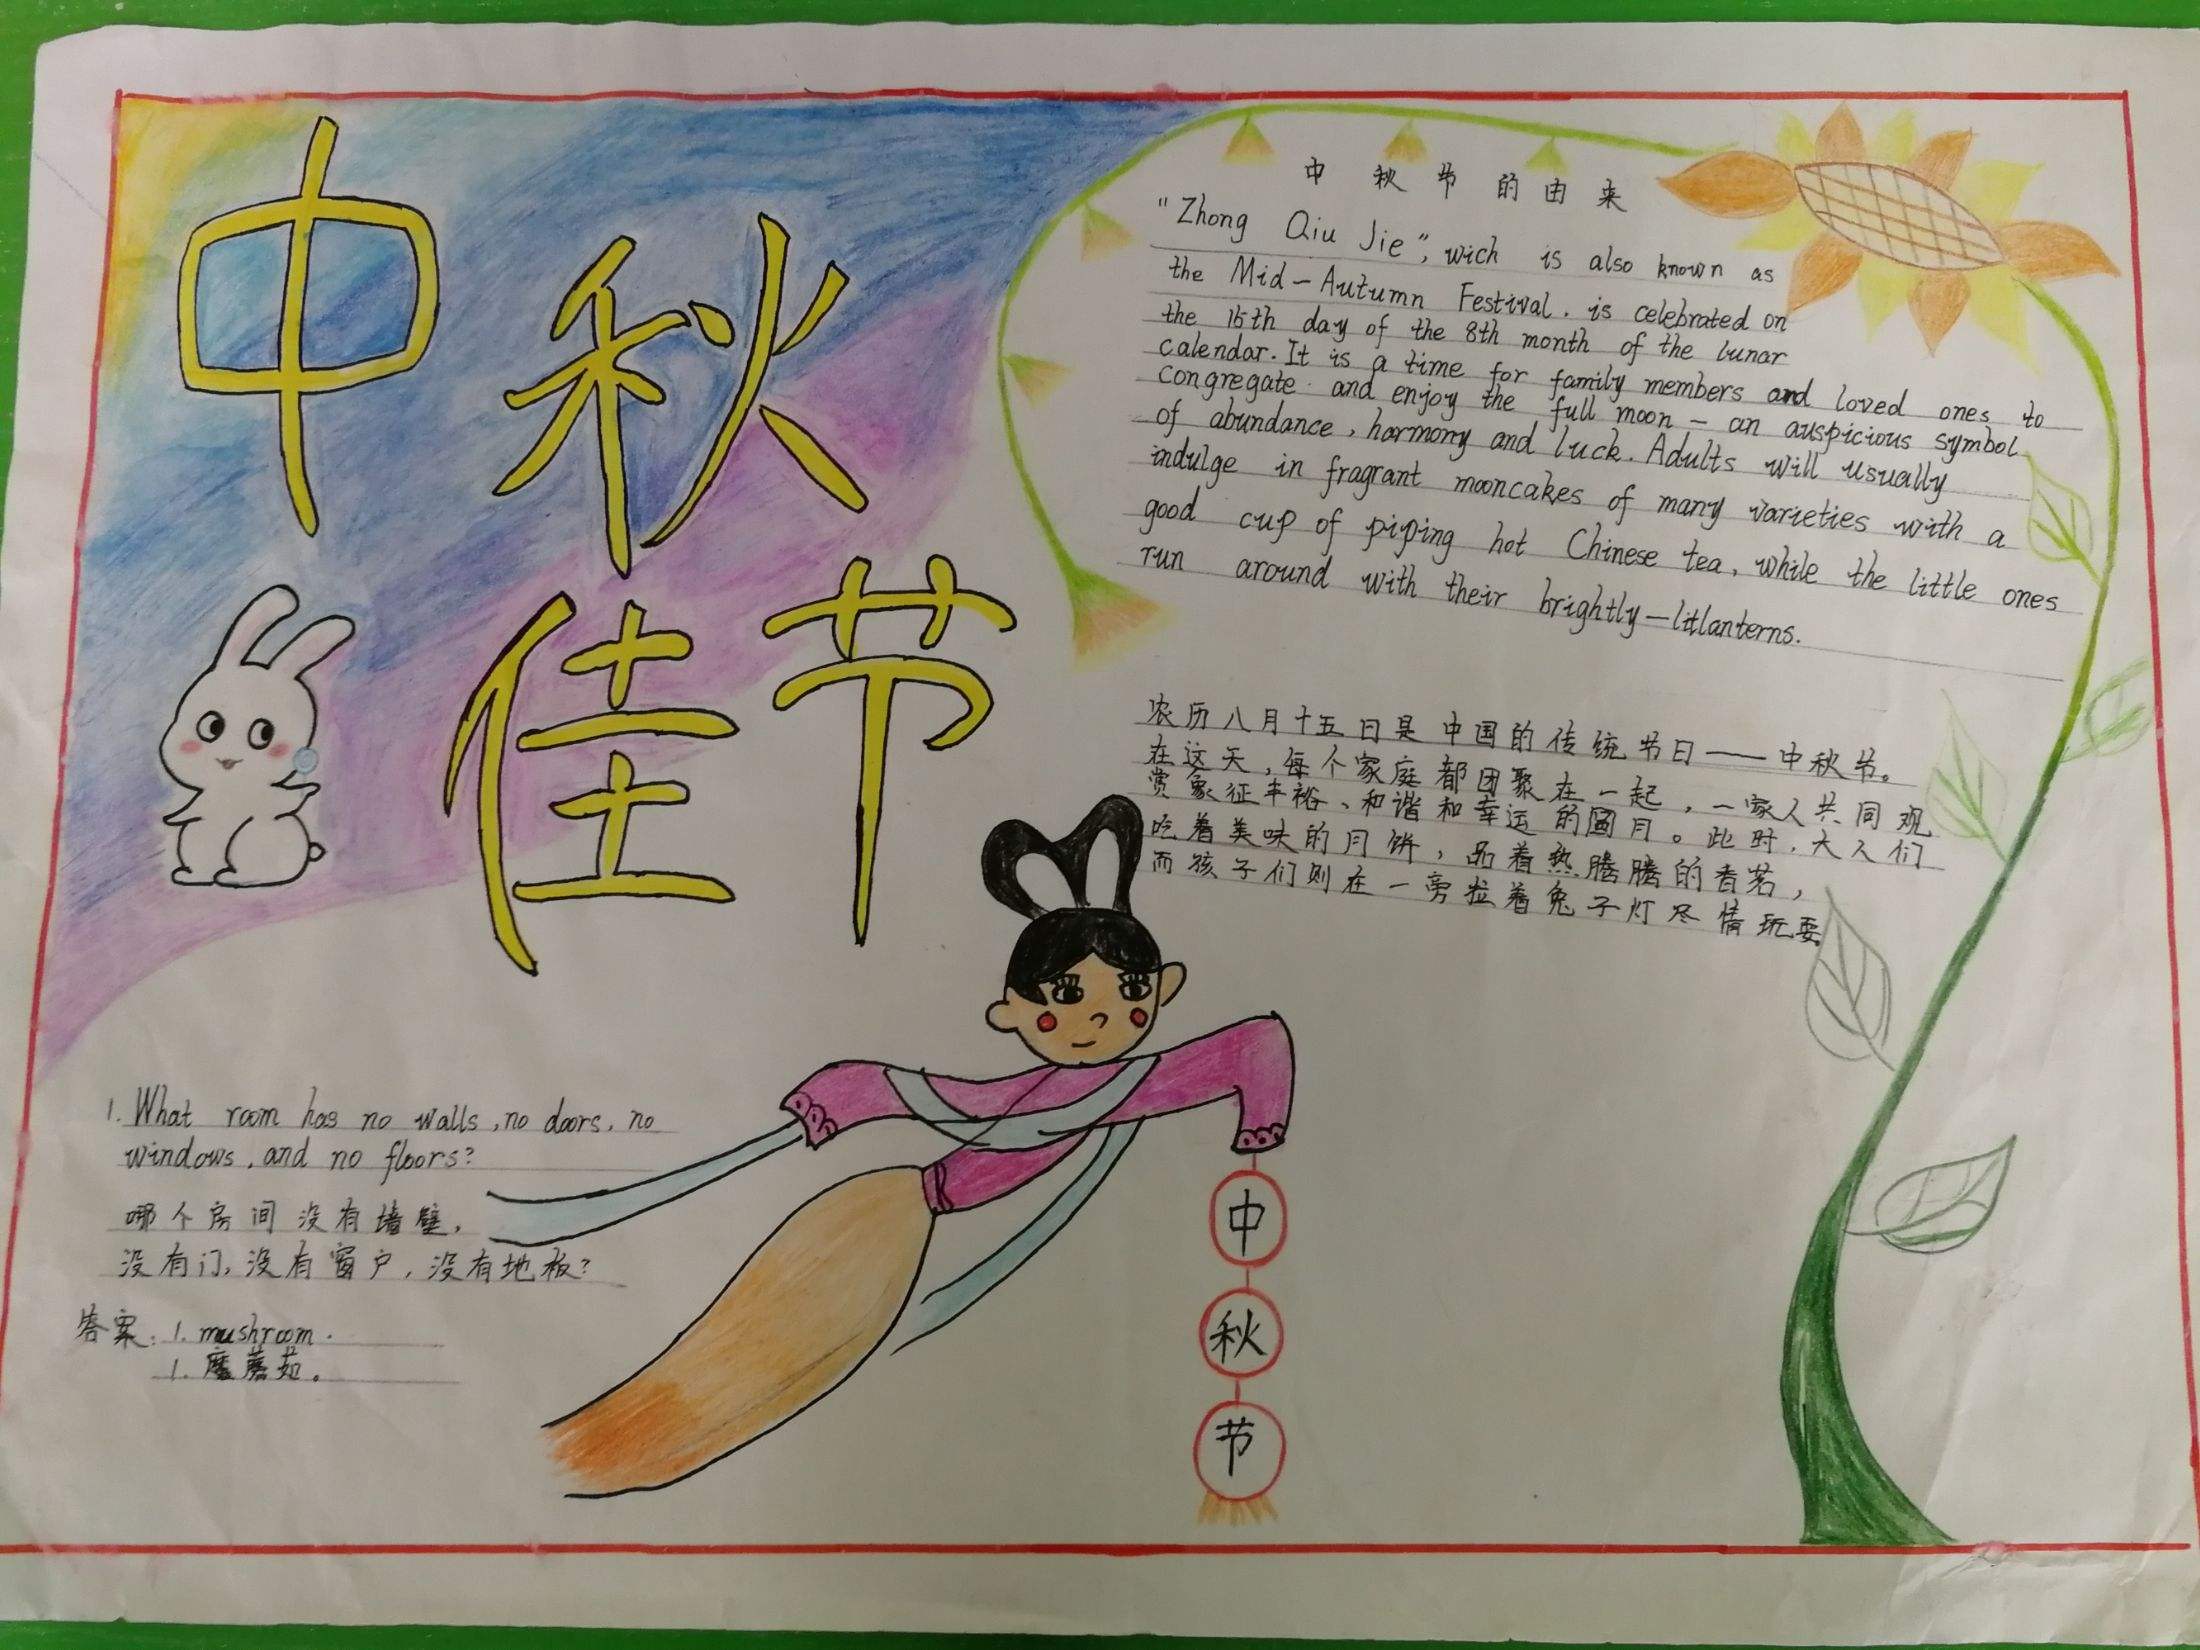 中秋
佳节
中秋节的由来
"Zhong Qiu Jie", wich is also known as
the Mid-Autumn Festival. is celebrated on
the 15th day of the 8th month of the lunar
calendar. It is a time for family members and loved ones to
congregate and enjoy the full moon - an auspicious symbol
of abundance, harmony and luck. Adults will usually
indulge in fragrant mooncakes of many varieties with a
good cup of piping hot Chinese tea, while the little ones
run around with their brightly-litlanterns.
农历八月十五日是中国的传统节日——中秋节。
在这天,每个家庭都团聚在一起,一家人共同观
赏象征丰裕、和谐和幸运的圆月。此时,大人们
吃着美味的月饼,品着热腾腾的香茗,
而孩子们则在一旁拉着兔子灯尽情玩耍
1. What room has no walls, no doors, no
windows, and no floors?
哪个房间没有墙壁,
没有门,没有窗户,没有地板?
答案: 1. mushroom.
1. 蘑菇。
中
秋
节